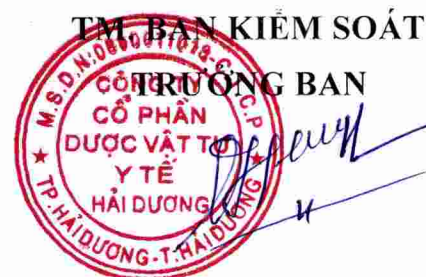 TM. BAN KIỂM SOÁT
TRƯỞNG BAN
M.S.D.N:0800011018-C.T.C.P
CÔNG TY
CỔ PHẦN
DƯỢC VẬT TƯ
Y TẾ
HẢI DƯƠNG
TP.HẢI DƯƠNG-T.HẢI DƯƠNG